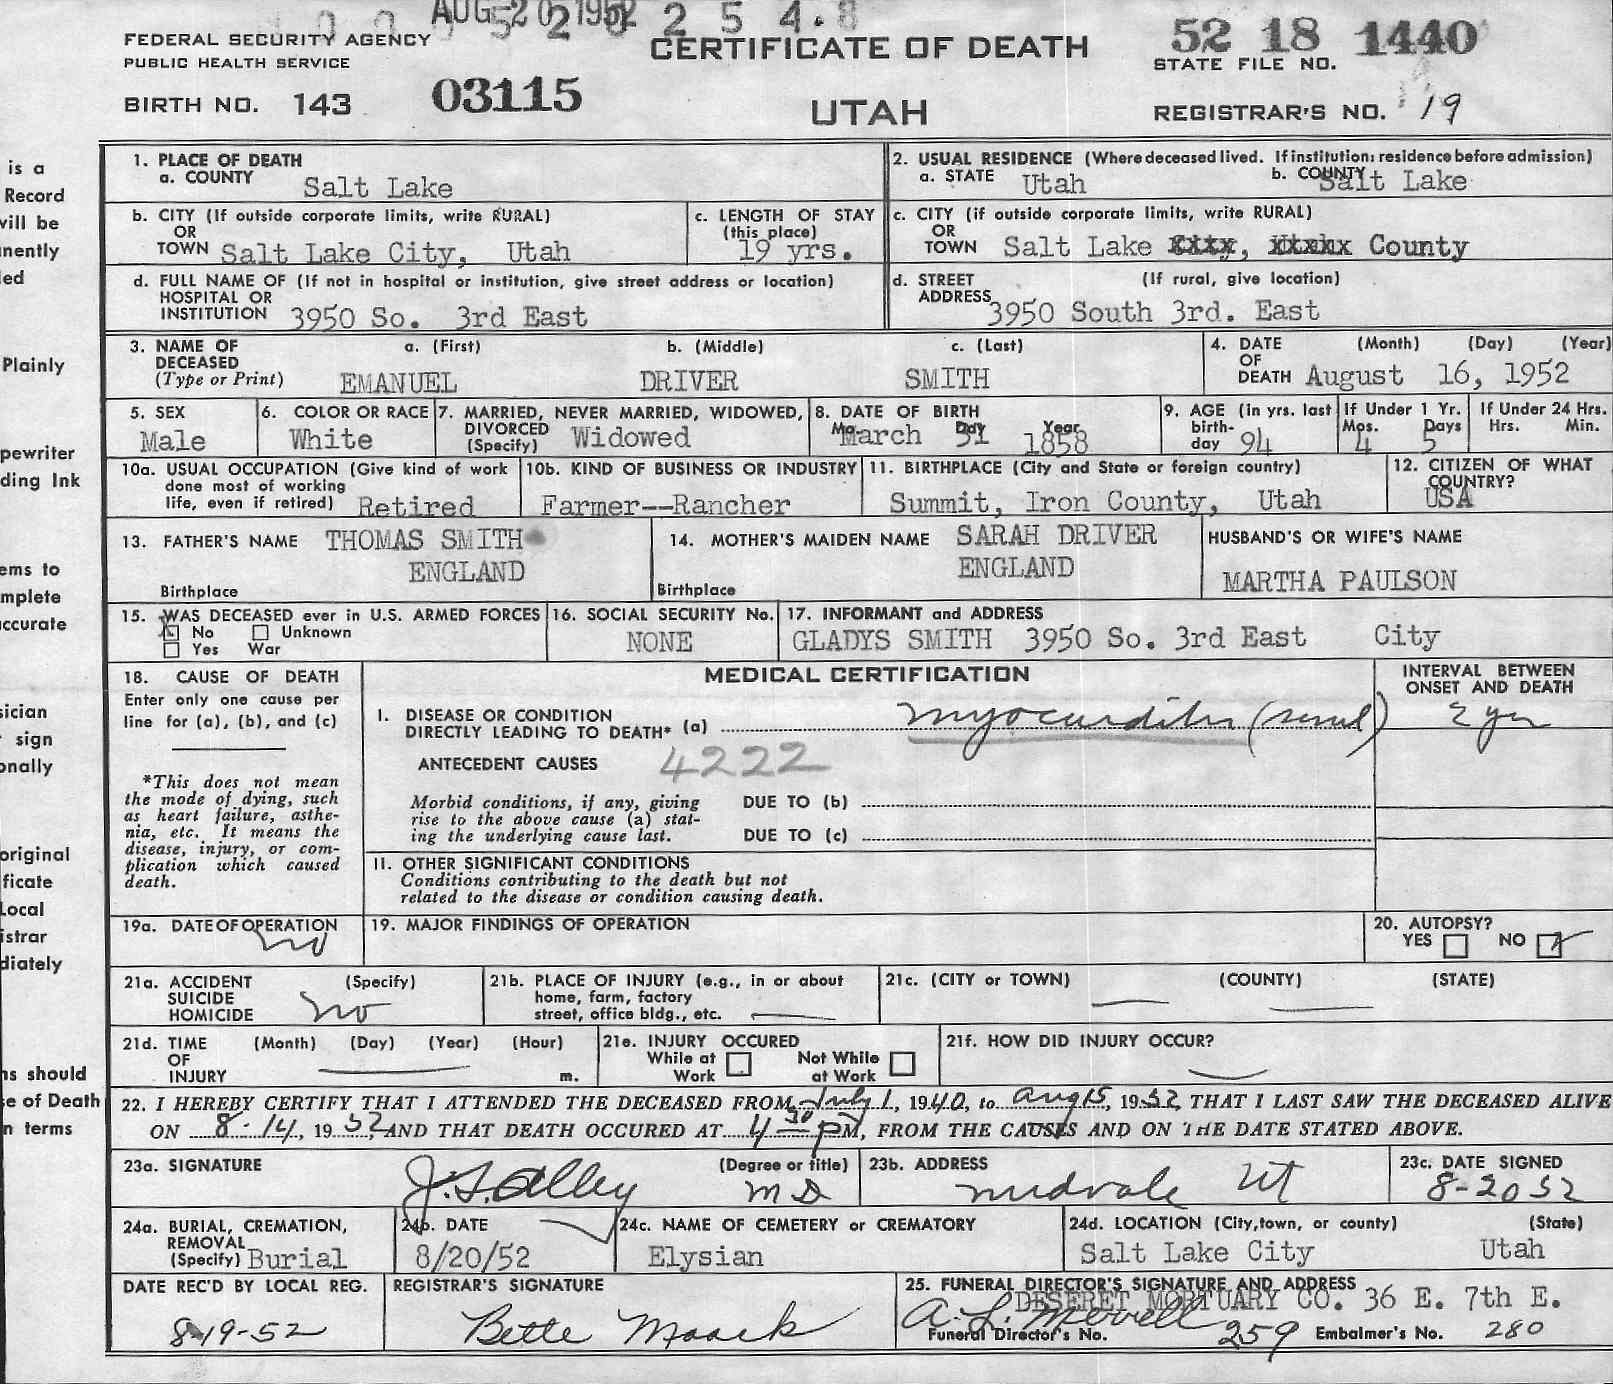 AUG 20 1952
2 5 4 8
FEDERAL SECURITY AGENCY
PUBLIC HEALTH SERVICE
CERTIFICATE OF DEATH
52 18 1440
STATE FILE NO.
BIRTH NO. 143 03115
UTAH
REGISTRAR'S NO. 19
is a
Record
will be
nently
ed
Plainly
pewriter
ding Ink
ems to
mplete
accurate
sician
sign
onally
original
ficate
Local
istrar
diately
ns should
se of Death
n terms
1. PLACE OF DEATH
a. COUNTY Salt Lake
2. USUAL RESIDENCE (Where deceased lived. If institution: residence before admission)
a. STATE Utah b. COUNTY Salt Lake
b. CITY (If outside corporate limits, write RURAL)
OR
TOWN Salt Lake City, Utah
c. LENGTH OF STAY
(this place)
19 yrs.
c. CITY (if outside corporate limits, write RURAL)
OR
TOWN Salt Lake City, Utah County
d. FULL NAME OF (If not in hospital or institution, give street address or location)
HOSPITAL OR
INSTITUTION 3950 So. 3rd East
d. STREET (If rural, give location)
ADDRESS 3950 South 3rd. East
3. NAME OF a. (First) b. (Middle) c. (Last)
DECEASED
(Type or Print) EMANUEL DRIVER SMITH
4. DATE (Month) (Day) (Year)
OF
DEATH August 16, 1952
5. SEX
Male
6. COLOR OR RACE
White
7. MARRIED, NEVER MARRIED, WIDOWED,
DIVORCED
(Specify) Widowed
8. DATE OF BIRTH
Mo. Day Year
March 31 1858
9. AGE (in yrs. last
birth-
day 94
If Under 1 Yr.
Mos. Days
4 5
If Under 24 Hrs.
Hrs. Min.
10a. USUAL OCCUPATION (Give kind of work
done most of working
life, even if retired) Retired
10b. KIND OF BUSINESS OR INDUSTRY
Farmer--Rancher
11. BIRTHPLACE (City and State or foreign country)
Summit, Iron County, Utah
12. CITIZEN OF WHAT
COUNTRY?
USA
13. FATHER'S NAME THOMAS SMITH
ENGLAND
Birthplace
14. MOTHER'S MAIDEN NAME SARAH DRIVER
ENGLAND
Birthplace
HUSBAND'S OR WIFE'S NAME
MARTHA PAULSON
15. WAS DECEASED ever in U.S. ARMED FORCES
No Unknown
Yes War
16. SOCIAL SECURITY No.
NONE
17. INFORMANT and ADDRESS
GLADYS SMITH 3950 So. 3rd East City
18. CAUSE OF DEATH
Enter only one cause per
line for (a), (b), and (c)
*This does not mean
the mode of dying, such
as heart failure, asthe-
nia, etc. It means the
disease, injury, or com-
plication which caused
death.
MEDICAL CERTIFICATION
INTERVAL BETWEEN
ONSET AND DEATH
I. DISEASE OR CONDITION
DIRECTLY LEADING TO DEATH* (a) myocarditis (senil) 2 yrs
ANTECEDENT CAUSES 4222
Morbid conditions, if any, giving
rise to the above cause (a) stat-
ing the underlying cause last.
DUE TO (b)
DUE TO (c)
II. OTHER SIGNIFICANT CONDITIONS
Conditions contributing to the death but not
related to the disease or condition causing death.
19a. DATE OF OPERATION
no
19. MAJOR FINDINGS OF OPERATION
20. AUTOPSY?
YES NO
21a. ACCIDENT (Specify)
SUICIDE
HOMICIDE no
21b. PLACE OF INJURY (e.g., in or about
home, farm, factory
street, office bldg., etc.
21c. (CITY or TOWN) (COUNTY) (STATE)
21d. TIME (Month) (Day) (Year) (Hour)
OF
INJURY m.
21e. INJURY OCCURED
While at Not While
Work at Work
21f. HOW DID INJURY OCCUR?
22. I HEREBY CERTIFY THAT I ATTENDED THE DECEASED FROM July 1, 1940, to Aug 15, 1952 THAT I LAST SAW THE DECEASED ALIVE
ON 8-14, 1952, AND THAT DEATH OCCURED AT 4 30 PM, FROM THE CAUSES AND ON THE DATE STATED ABOVE.
23a. SIGNATURE (Degree or title)
J.S. Alley MD
23b. ADDRESS
Midvale Ut
23c. DATE SIGNED
8-20 52
24a. BURIAL, CREMATION,
REMOVAL
(Specify) Burial
24b. DATE
8/20/52
24c. NAME OF CEMETERY or CREMATORY
Elysian
24d. LOCATION (City, town, or county) (State)
Salt Lake City Utah
DATE REC'D BY LOCAL REG.
8-19-52
REGISTRAR'S SIGNATURE
Bette Maack
25. FUNERAL DIRECTOR'S SIGNATURE AND ADDRESS
DESERET MORTUARY CO. 36 E. 7th E.
Funeral Director's No. 259 Embalmer's No. 280